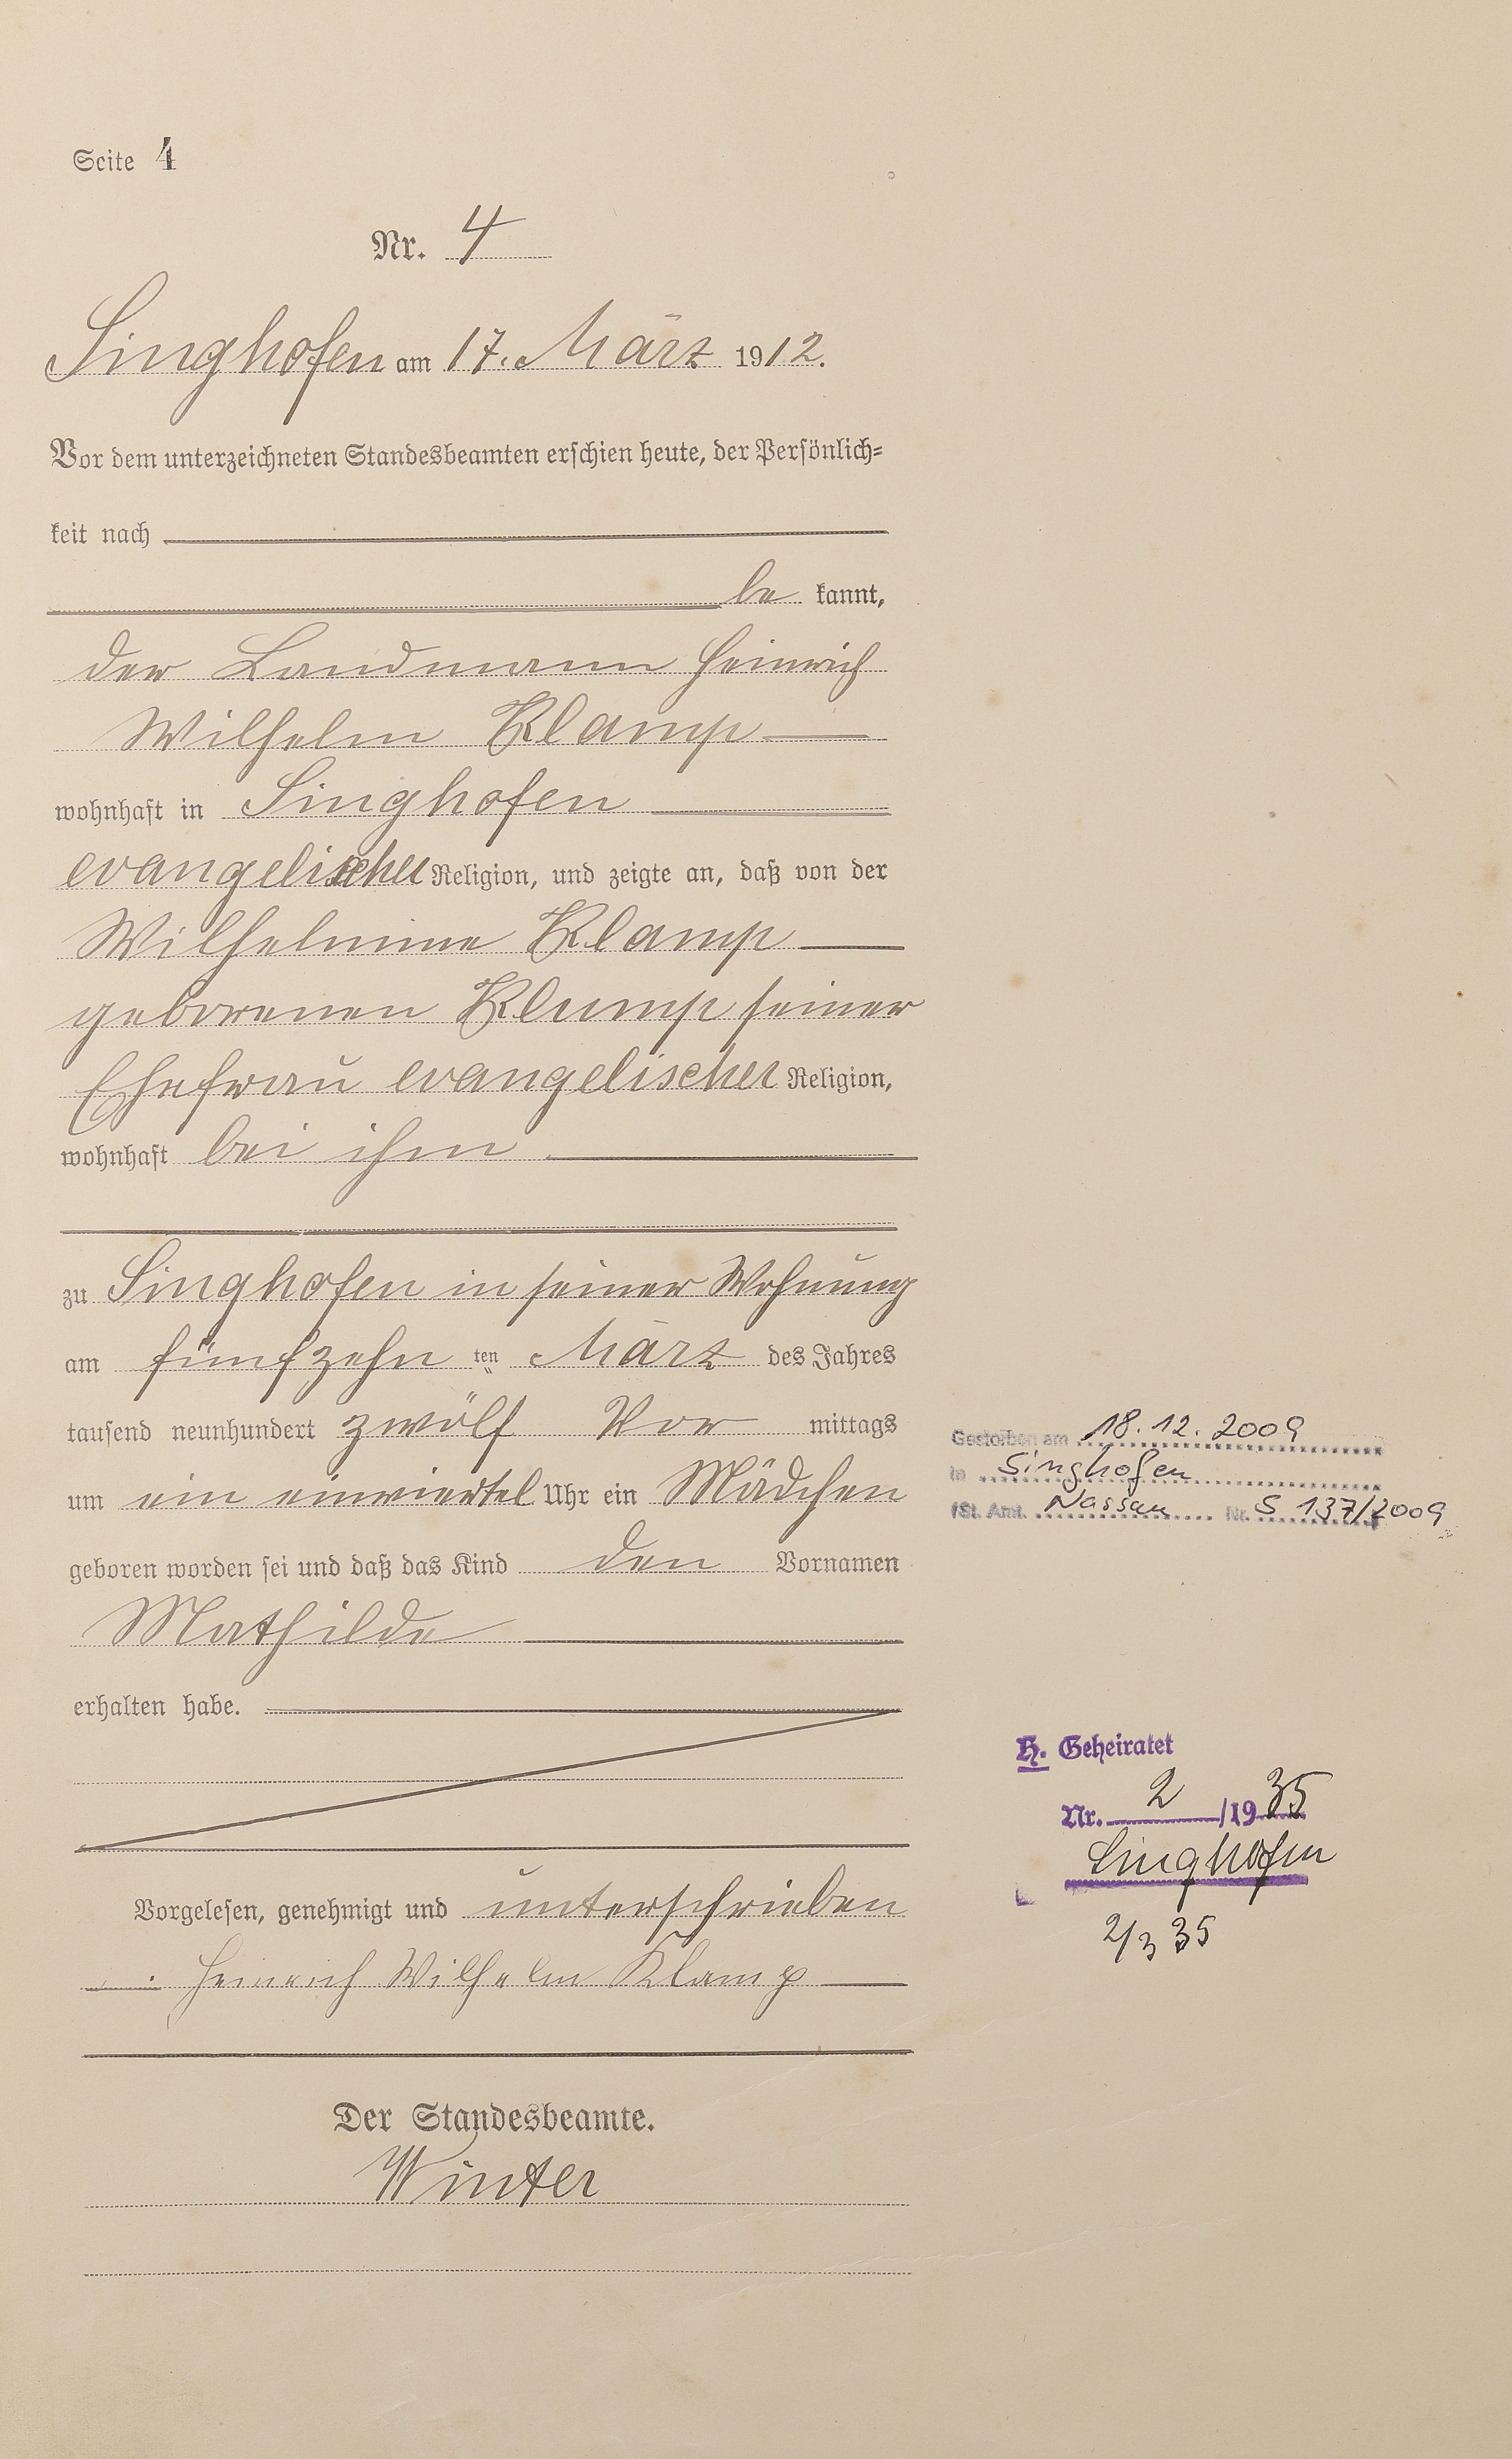 Seite 4
Nr. 4
Singhofen am 17. März 1912.
Vor dem unterzeichneten Standesbeamten erschien heute, der Persönlich=
keit nach
be kannt,
der Landmann Heinrich
Wilhelm Klamp
wohnhaft in Singhofen
evangelischer Religion, und zeigte an, daß von der
Wilhelmine Klamp
geborenen Klump seiner
Ehefrau evangelischer Religion,
wohnhaft bei ihm
zu Singhofen in seiner Wohnung
am fünfzehn ten März des Jahres
tausend neunhundert zwölf Vor mittags
um ein einviertel Uhr ein Mädchen
geboren worden sei und daß das Kind den Vornamen
Mathilde
erhalten habe.
Vorgelesen, genehmigt und unterschrieben
Heinrich Wilhelm Klamp
Der Standesbeamte.
Winter
Gestorben am 18.12.2009
in Singhofen
(St. Amt. Nassau Nr. S 137/2009
H. Geheiratet
Nr. 2 /1935
Singhofen
2/3 35